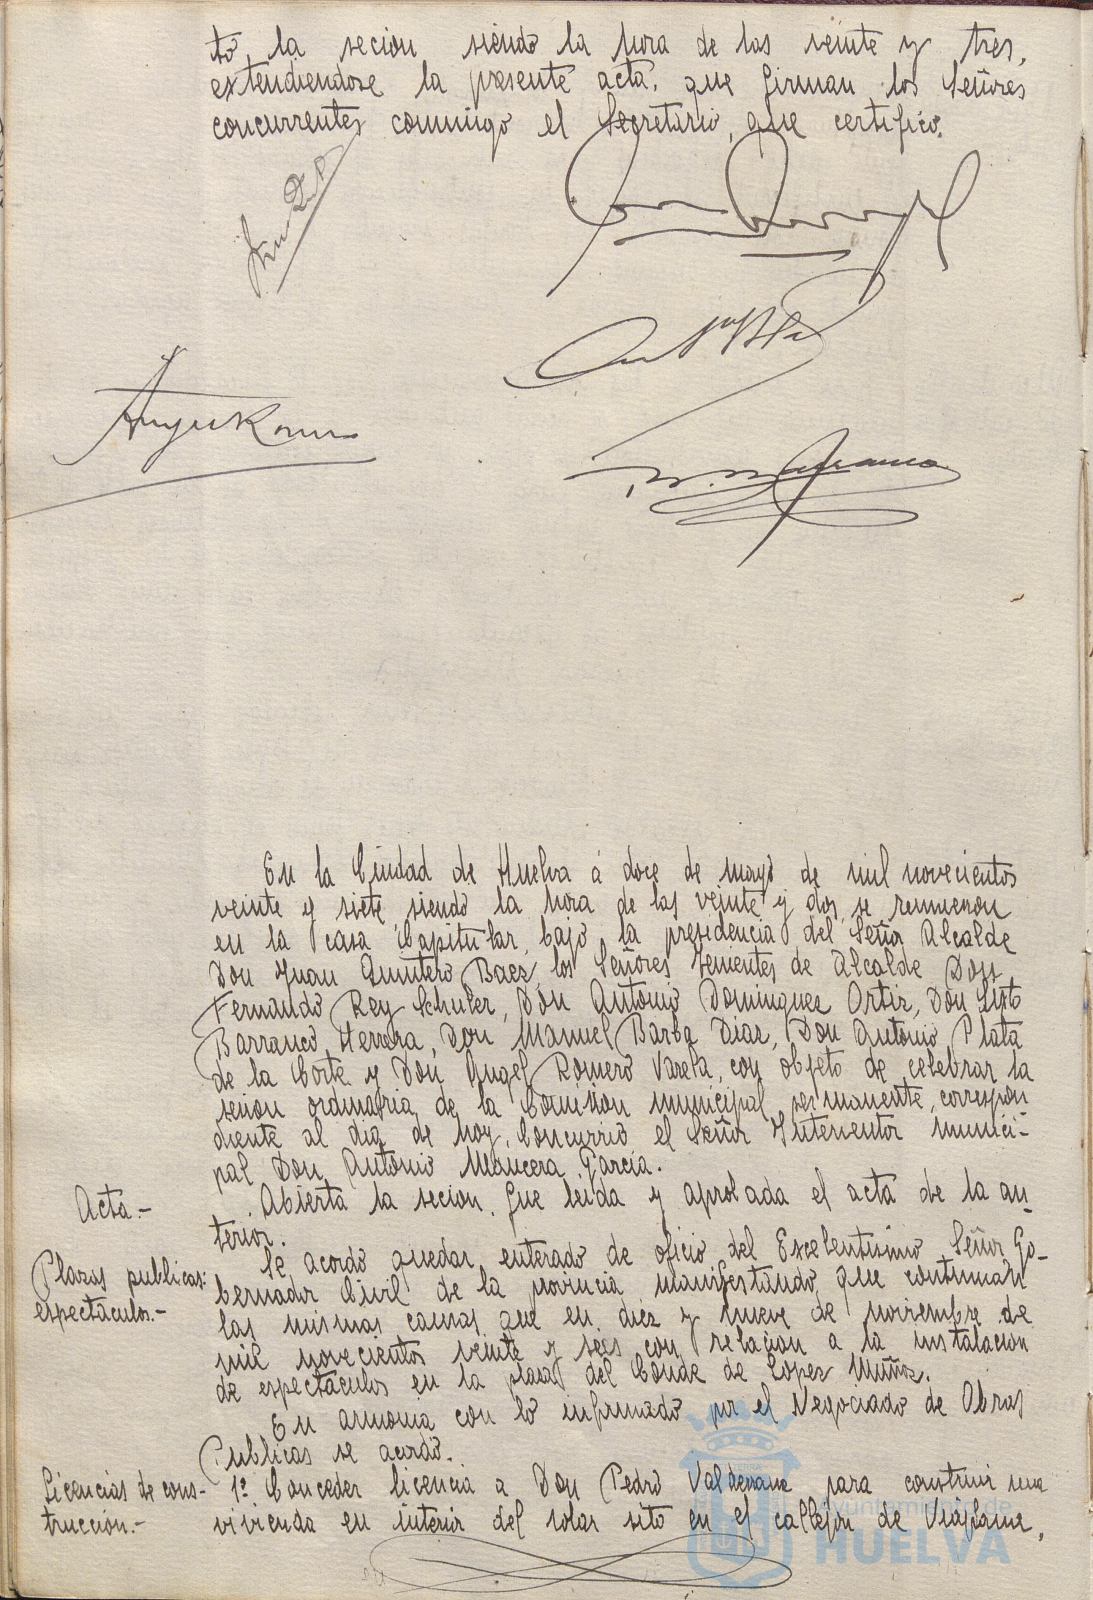 to la secion siendo la hora de las veinte y tres,
extendiendose la presente acta, que firman los Señores
concurrentes commigo el Secretario, que certifico.
En la Ciudad de Huelva á doce de mayo de mil novecientos
veinte y siete siendo la hora de las veinte y dos, se reunieron
en la casa Capitular, bajo la presidencia del Señor Alcalde
Don Juan Quintero Baez, los Señores Tenientes de Alcalde Don
Fernando Rey Schuler, Don Antonio Dominguez Ortiz, Don Sixto
Barranco Herrera, Don Manuel Barba Diaz, Don Antonio Plata
de la Corte y Don Angel Romero Varela, con objeto de celebrar la
sesion ordinaria de la Comision municipal permanente, correspon
diente al dia de hoy. Concurrió el Señor Interventor munici-
pal Don Antonio Mancera Garcia.
Acta.- Abierta la secion, fue leida y aprobada el acta de la an
terior.
Plazas publicas: Se acordó quedar enterado de oficio del Excelentisimo Señor Go-
espectaculos.- bernador Civil de la provincia manifestando que continuan
las mismas causas que en diez y nueve de noviembre de
mil novecientos veinte y seis con relacion a la instalacion
de espectaculos en la plaza del Conde de Lopez Muñoz.
En armonia con lo informado por el Negociado de Obras
Publicas se acordó.
Licencias de cons- 1º Conceder licencia a Don Pedro Valderrama para construir una
truccion.- vivienda en interior del solar sito en el callejon de
Ayuntamiento de
HUELVA